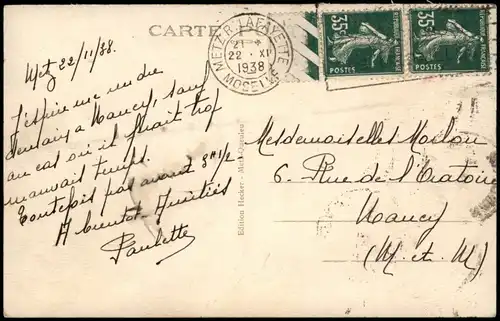 CARTE
Metz 22/11/38.
J'espère me rendre
demain à Nancy, sauf
au cas où il ferait trop
mauvais temps.
Toutefois pas avant 8H 1/2
A bientôt - Amitiés
Paulette
METZ R. LAFAYETTE
22 · XI
1938
MOSELLE
35c
POSTES
REPUBLIQUE FRANÇAISE
35c
POSTES
REPUBLIQUE FRANÇAISE
Edition Hecker - Metz-Queuleu
Mesdemoiselles
6. Rue de l'Oratoire
Nancy
(M. et. M)